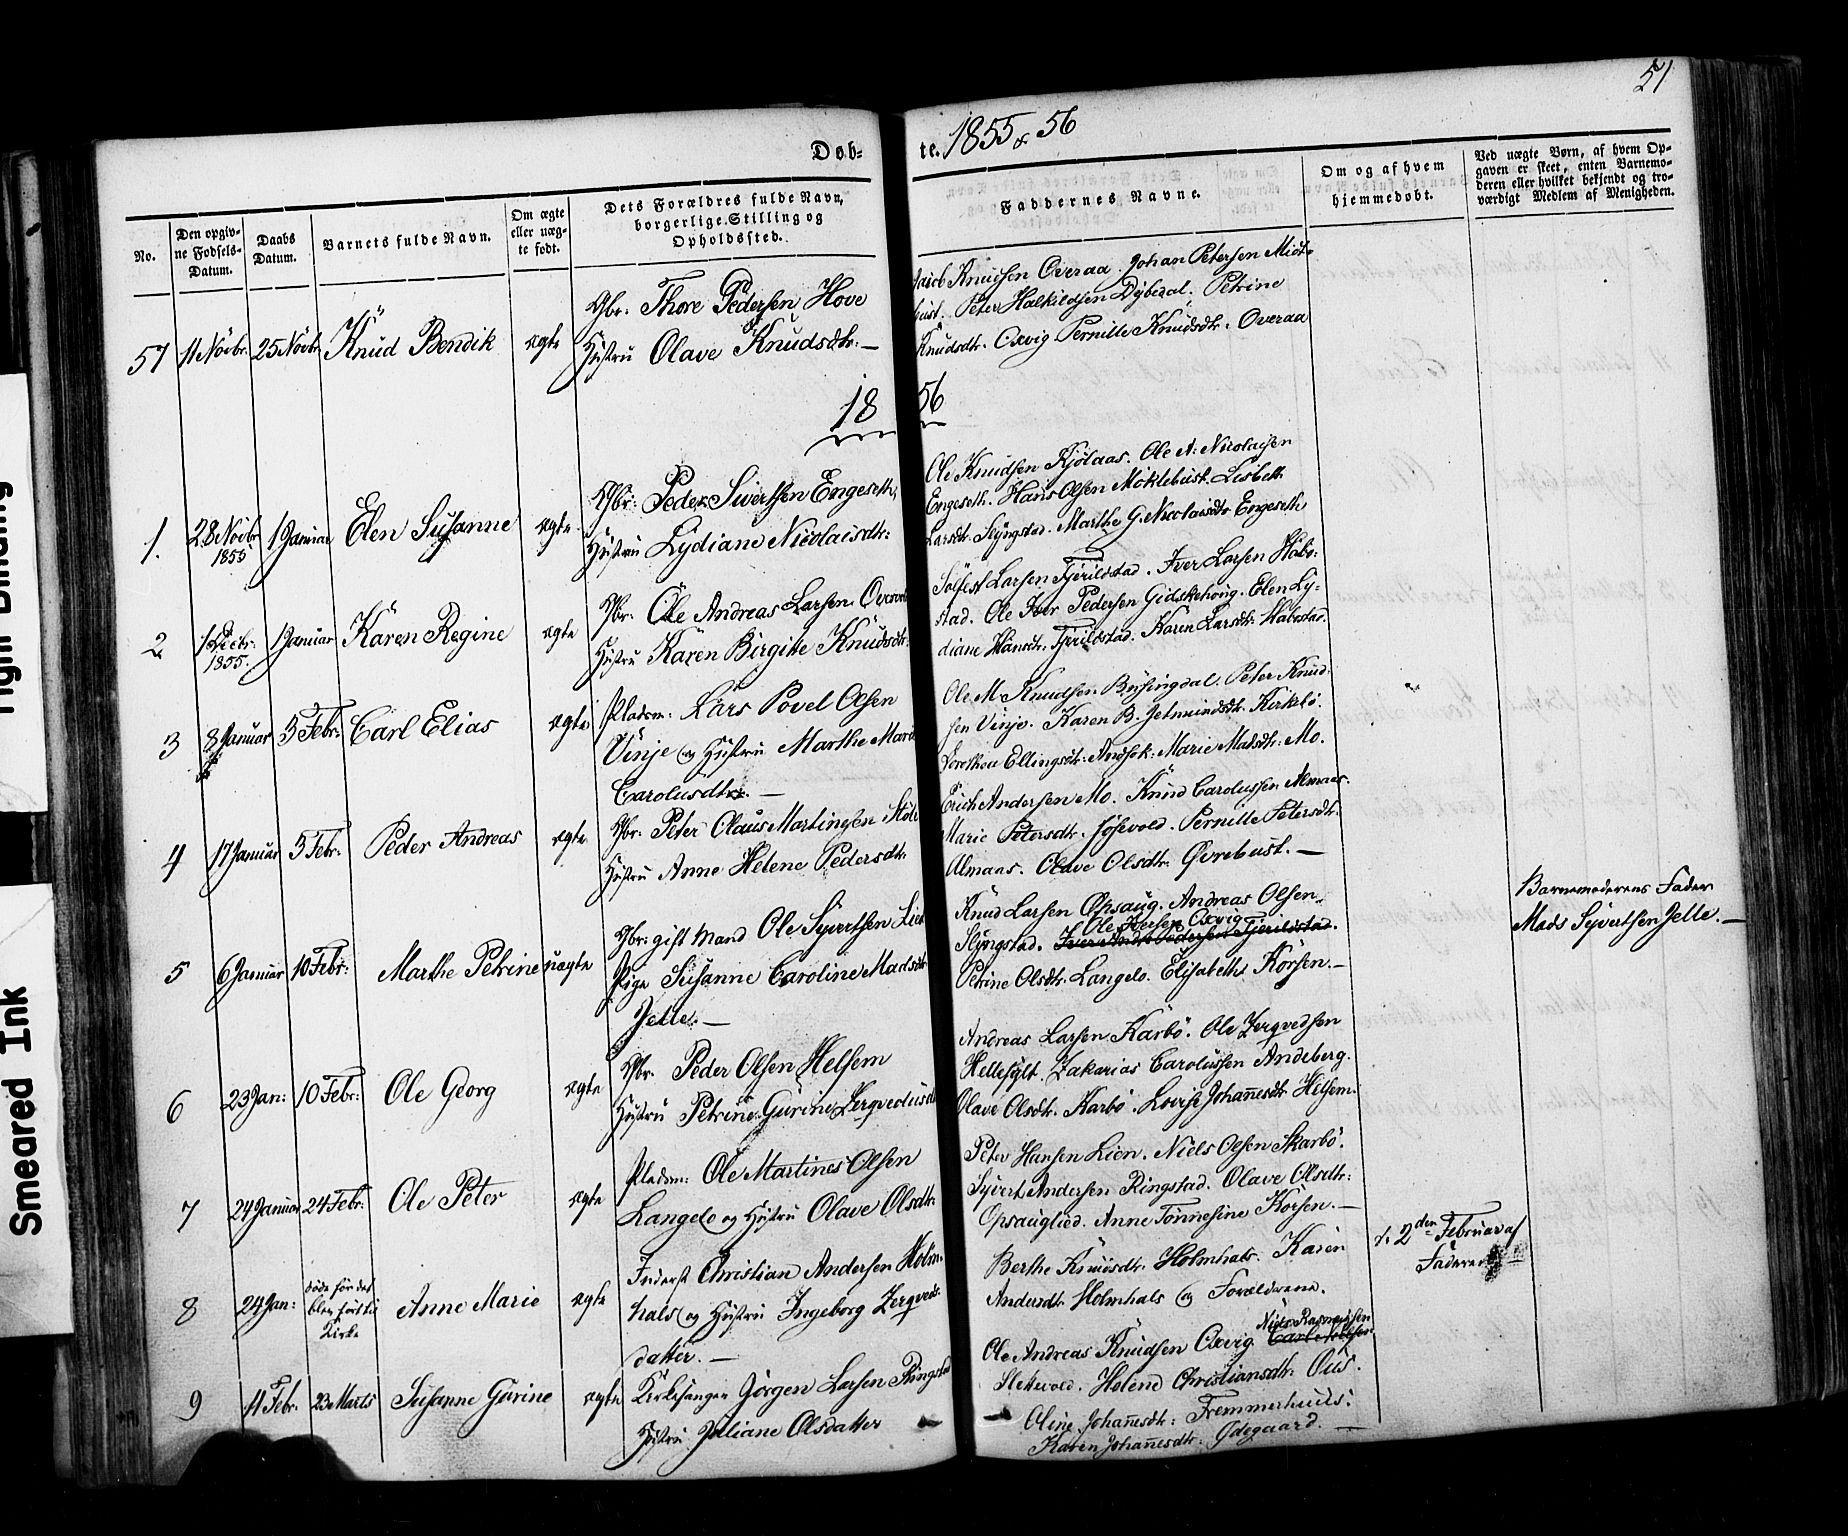 51
Døb-
te. 1855 & 56
No.
Den opgiv-
ne Fødsels-
Datum.
Daabs
Datum.
Barnets fulde Navn.
Om ægte
eller uæg-
te født.
Dets Forældres fulde Navn,
borgerlige Stilling og
Opholdssted.
Faddernes Navne.
Om og af hvem
hjemmedøbt.
Ved uægte Børn, af hvem Op-
gaven er skeet, enten Barnemo-
deren eller hvilket bekjendt og tro-
værdigt Medlem af Menigheden.
57 11 Novbr 25 Novbr Knud Bendik ægte
Gbr: Thore Pedersen Hove
Hustru Olave Knudsdtr: —
Knudsen Overaa. Johan Petersen Midt-
bust. Peter Halkildsen Dybdal. Petrine
Knudsdtr. Oxvig Pernille Knudsdtr. Overaa
1856
1. 28 Novbr 1855 1 Januar Elen Susanne ægte
Gbr: Peder Sivertsen Engeseth,
Hustru Lydiane Nicolaisdtr:
Ole Knudsen Kjølaas. Ole A. Nicolaisen
Engeseth. Hans Olsen Möklebust. Lisbeth
Larsdtr. Slyngstad. Marthe G. Nicolaisdtr Engeseth
2 1 Decbr: 1855. 1 Januar Karen Regine ægte
Gbr. Ole Andreas Larsen
Hustru Karen Birgitte Knudsdtr:
Sölfest Larsen Tjerildstad. Iver Larsen Habo-
stad. Ole Iver Pedersen Gidskehoug. Elen Ly-
diane Hansdtr. Tjerildstad. Karen Larsdtr. Habostad.
3 8 Januar 3 Febr: Carl Elias ægte
Pladsm: Lars Povel Olsen
Vinje og Hustru Marthe Marie
Carolusdtr. —
Ole M Knudsen Brusingdal. Peter Knud-
sen Vinje. Karen B. Jetmundsdtr. Kirkebø.
Dorothea Ellingsdtr: Marie Madsdtr: Mo.
4 17 Januar 3 Febr: Peder Andreas ægte
Gbr: Peter Olaus Martinusen
Hustru Anne Helene Pedersdtr
Erich Andersen Mo. Knud Carolussen Almaas.
Marie Petersdtr. Pernille Petersdtr.
Almaas. Olave Olsdtr. Øvrebust. —
5 6 Januar 10 Febr: Marthe Petrine uægte
Gbr: gift Mand Ole Syvertsen Lien
Pige Susanne Caroline Madsdtr
Jelle. —
Knud Larsen Opsaug. Andreas Olsen
Ole Iversen Oxvig
Slyngstad. Iver Andr: Pedersen Tjerildstad.
Petrine Olsdtr. Langelo. Elisabeth Korsen. —
Barnemoderens Fader
Mads Syvertsen Jelle. —
6 23 Jan: 10 Febr: Ole Georg ægte
Gbr. Peder Olsen Helsem
Hustru Petrine Gurine
Andreas Larsen Karbö. Ole Zergvedsen
Hellesylt. Zakarias Carolussen Andeberg.
Olave Olsdtr. Karbö. Lovise Johannesdtr Helsem.
7 24 Januar 24 Febr: Ole Peter ægte
Pladsm: Ole Martines Olsen
Langelo og Hustru Olave Olsdtr
Peter Hansen Lien. Niels Olsen Skarbö.
Syvert Andersen Ringstad. Olave Olsdtr:
Opsauglied. Anne Tonnesine Korsen. —
8 24 Jan: døde før det
blev ført til
Kirke
Anne Marie ægte
Inderst Christian Andersen Holm-
hals og Hustru Ingeborg Zergveds-
datter. —
Berthe Knudsdtr. Holmhals. Karen
Andersdtr Holmhals og Forældrene.
d. 2den Februar af
Faderen
9 4 Febr. 23 Marts Susanne Gurine ægte
Kirkesanger Jørgen Larsen Ringstad
Hustru Juliane Olsdatter
Ole Andreas Knudsen Oxvig. Niels Rasmussen
Slettevold. Helene Christiansdtr. Aus.
Oline Johannesdtr: Fremmerhuus.
Karen Johannesdtr. Ødegaard. —
Tight Binding
Smeared Ink